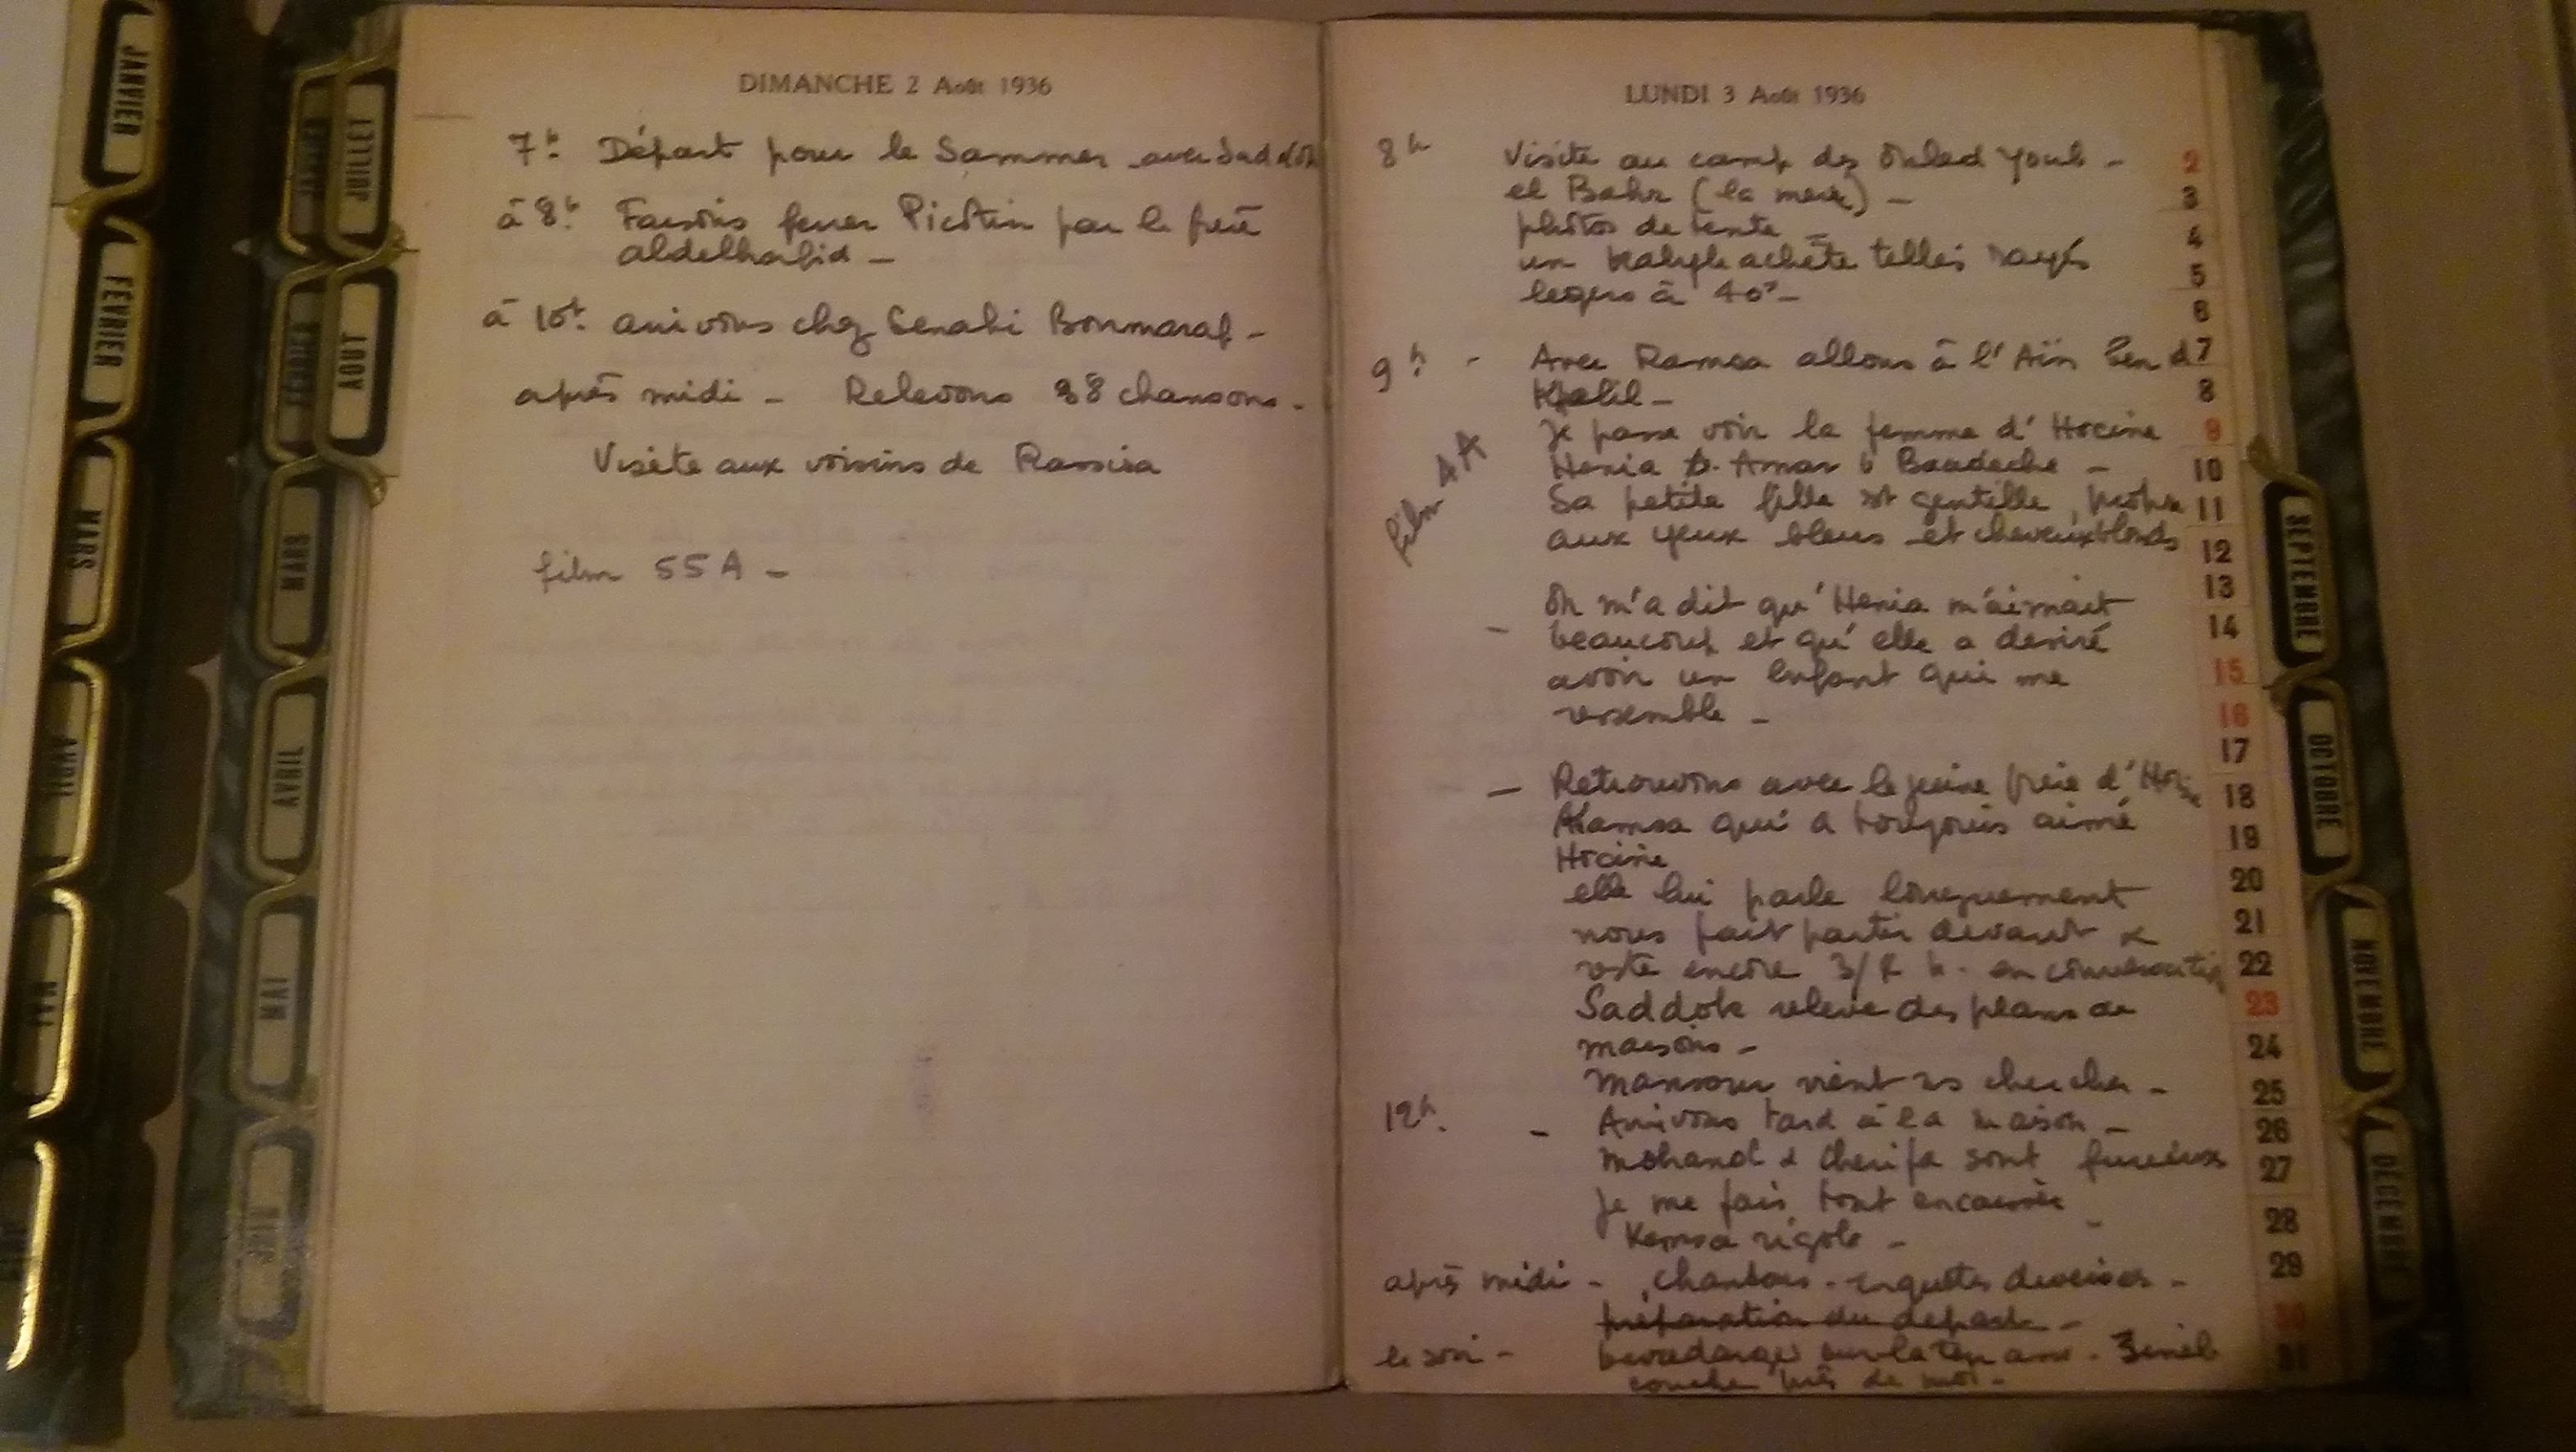 DIMANCHE 2 Août 1936
7h. Départ pour le Sammer avec Saddok
à 8h. Faisons ferrer Picotin par le frère
abdelhafid –
à 10h. arrivons chez Senahi Boumaraf –
après midi – Relevons 38 chansons –
Visite aux voisins de Rassira
film 55A –
LUNDI 3 Août 1936
8h Visite au camp des Ouled Youb –
el Bahr (la mer) –
photos de tente –
un Kabyle achète tellis rayés
legers à 40f –
9h. – Avec Ramsa allons à l'Aïn
Khelil –
Je passe voir la femme d'Hocine
Henia b. Amar b Baadache –
Sa petite fille est gentille, propre
aux yeux bleus et cheveux blonds
film 4A
– On m'a dit qu'Henia m'aimait
beaucoup et qu'elle a desiré
avoir un enfant qui me
resemble –
– Retrouvons avec le jeune frère d'Hocine
Kamsa qui a toujours aimé
Hocine
elle lui parle longuement
nous fait partir devant &
reste encore 3/4 h. en conversation
Saddok relève des plans de
maisons –
Mansour vient ns chercher –
12h. – Arrivons tard à la maison –
Mohand & Cherifa sont furieux
Je me fais tout encaisser –
Kamsa rigole –
après midi – chansons – enquêtes diverses –
préparation du depart –
le soir – sur la terrasse –
couche près de moi –
JANVIER
FÉVRIER
MARS
AVRIL
MAI
JUIN
JUILLET
AOUT
MARS
AVRIL
MAI
JUIN
2
3
4
5
6
7
8
9
10
11
12
13
14
15
16
17
18
19
20
21
22
23
24
25
26
27
28
29
30
31
SEPTEMBRE
OCTOBRE
NOVEMBRE
DÉCEMBRE